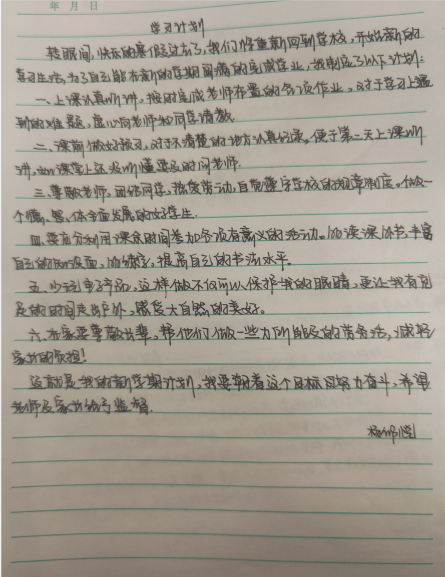 年 月 日
学习计划
转眼间,快乐的暑假过去了,我们将重新回到学校,开始新的
学习生活,为了自己能在新的学期圆满的完成学业,我制定了以下计划:
一、上课认真听讲,按时完成老师布置的各项作业。对于学习上遇
到的难题,虚心向老师和同学请教。
二、课前做好预习,对于不清楚的地方认真记录。便于第二天上课听
讲,如课堂上还没听懂要及时问老师.
三、尊敬老师,团结同学,热爱劳动,自觉遵守学校的规章制度。做一
个德、智、体全面发展的好学生.
四、要充分利用课余时间参加各项有意义的活动。加读课外书,丰富
自己的知识面,加练字,提高自己的书法水平。
五、少玩电子产品,这样做不仅可以保护我的眼睛,更让我有充
足的时间走出户外,感受大自然的美好。
六、在家要尊敬长辈,帮他们做一些力所能及的劳务活,减轻
家长的负担!
这就是我的新学期计划,我要朝着这个目标而努力奋斗,希望
老师及家长给予监督.